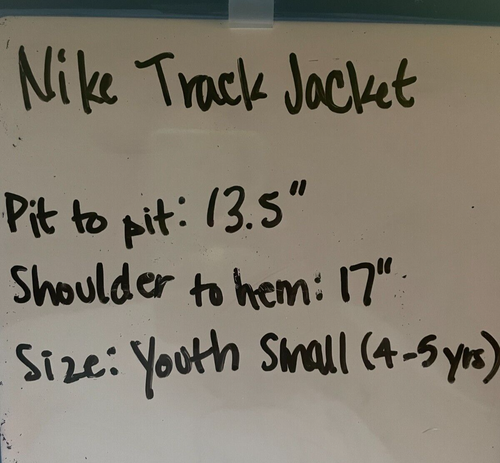 Nike Track Jacket
Pit to pit: 13.5"
Shoulder to hem: 17"
Size: Youth Small (4-5 yrs)